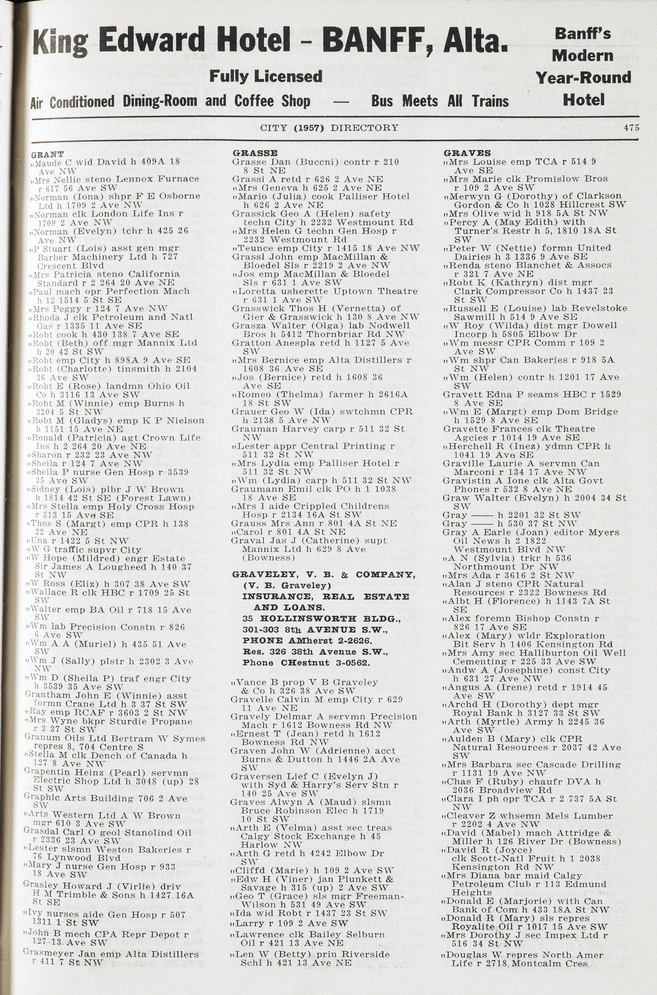 King Edward Hotel - BANFF, Alta.
Fully Licensed
Air Conditioned Dining-Room and Coffee Shop — Bus Meets All Trains
Banff's
Modern
Year-Round
Hotel
CITY (1957) DIRECTORY 475
GRANT
"Maude C wid David h 409A 18
Ave NW
"Mrs Nellie steno Lennox Furnace
r 617 56 Ave SW
"Norman (Iona) shpr F E Osborne
Ltd h 1709 2 Ave NW
"Norman clk London Life Ins r
1709 2 Ave NW
"Norman (Evelyn) tchr h 425 26
Ave NW
"P Stuart (Lois) asst gen mgr
Barber Machinery Ltd h 727
Crescent Blvd
"Mrs Patricia steno California
Standard r 2 264 20 Ave NE
"Paul mach opr Perfection Mach
h 12 1514 5 St SE
"Mrs Peggy r 124 7 Ave NW
"Rhoda J clk Petroleum and Natl
Gas r 1335 11 Ave SE
"Robt cook h 430 138 7 Ave SE
"Robt (Beth) off mgr Mannix Ltd
h 20 42 St SW
"Robt emp City h 898A 9 Ave SE
"Robt (Charlotte) tinsmith h 2104
36 Ave SW
"Robt E (Rose) landmn Ohio Oil
Co h 3116 13 Ave SW
"Robt M (Winnie) emp Burns h
3204 5 St NW
"Robt M (Gladys) emp K P Nielson
h 1151 15 Ave NE
"Ronald (Patricia) agt Crown Life
Ins h 2 264 20 Ave NE
"Sharon r 232 23 Ave NW
"Sheila r 124 7 Ave NW
"Sheila P nurse Gen Hosp r 3539
35 Ave SW
"Sidney (Lois) plbr J W Brown
h 1814 42 St SE (Forest Lawn)
"Mrs Stella emp Holy Cross Hosp
r 313 15 Ave SE
"Thos S (Margt) emp CPR h 138
22 Ave NE
"Una r 1422 5 St NW
"W G traffic supvr City
"W Hope (Mildred) engr Estate
Sir James A Lougheed h 140 37
St NW
"W Ross (Eliz) h 307 38 Ave SW
"Wallace R clk HBC r 1709 25 St
SW
"Walter emp BA Oil r 718 15 Ave
SW
"Wm lab Precision Constn r 826
6 Ave SW
"Wm A A (Muriel) h 435 51 Ave
SW
"Wm J (Sally) plstr h 2302 3 Ave
NW
"Wm D (Sheila P) traf engr City
h 3539 35 Ave SW
Grantham John E (Winnie) asst
formn Crane Ltd h 3 37 St SW
"Ray emp RCAF r 3603 2 St NW
"Mrs Wyne bkpr Sturdie Propane
r 3 37 St SW
Granum Oils Ltd Bertram W Symes
repres 8, 704 Centre S
"Stella M clk Dench of Canada h
127 8 Ave NW
Grapentin Heinz (Pearl) servmn
Electric Shop Ltd h 3048 (up) 28
St SW
Graphic Arts Building 706 2 Ave
SW
"Arts Western Ltd A W Brown
mgr 610 3 Ave SW
Grasdal Carl O geol Stanolind Oil
r 2336 23 Ave SW
"Lester slsmn Weston Bakeries r
76 Lynwood Blvd
"Mary J nurse Gen Hosp r 933
18 Ave SW
Grasley Howard J (Virlie) driv
H M Trimble & Sons h 1427 16A
St SE
"Ivy nurses aide Gen Hosp r 507
1311 1 St SW
"John B mech CPA Repr Depot r
127 13 Ave SW
Grasmeyer Jan emp Alta Distillers
r 411 7 St NW
GRASSE
Grasse Dan (Buccni) contr r 210
8 St NE
Grassi A retd r 626 2 Ave NE
"Mrs Geneva h 625 2 Ave NE
"Mario (Julia) cook Palliser Hotel
h 626 2 Ave NE
Grassick Geo A (Helen) safety
techn City h 2232 Westmount Rd
"Mrs Helen G techn Gen Hosp r
2232 Westmount Rd
"Teunce emp City r 1415 18 Ave NW
Grassl John emp MacMillan &
Bloedel Sls r 2219 2 Ave NW
"Jos emp Macmillan & Bloedel
Sls r 631 1 Ave SW
"Loretta usherette Uptown Theatre
r 631 1 Ave SW
Grasswick Thos H (Vernetta) of
Gier & Grasswick h 130 8 Ave NW
Grasza Walter (Olga) lab Nodwell
Bros h 5412 Thornbriar Rd NW
Gratton Anespla retd h 1127 5 Ave
SW
"Mrs Bernice emp Alta Distillers r
1608 36 Ave SE
"Jos (Bernice) retd h 1608 36
Ave SE
"Romeo (Thelma) farmer h 2616A
18 St SW
Grauer Geo W (Ida) swtchmn CPR
h 2138 5 Ave NW
Grauman Harvey carp r 511 32 St
NW
"Lester appr Central Printing r
511 32 St NW
"Mrs Lydia emp Palliser Hotel r
511 32 St NW
"Wm (Lydia) carp h 511 32 St NW
Graumann Emil clk PO h 1 1038
18 Ave SE
"Mrs I aide Crippled Childrens
Hosp r 2134 16A St SW
Grauss Mrs Ann r 801 4A St NE
"Carol r 801 4A St NE
Graval Jas J (Catherine) supt
Mannix Ltd h 629 8 Ave
(Bowness)
GRAVELEY, V. B. & COMPANY,
(V. B. Graveley)
INSURANCE, REAL ESTATE
AND LOANS.
35 HOLLINSWORTH BLDG.,
301-303 8th AVENUE S.W.,
PHONE AMherst 2-2626.
Res. 326 38th Avenue S.W.,
Phone CHestnut 3-0562.
"Vance B prop V B Graveley
& Co h 326 38 Ave SW
Gravelle Calvin M emp City r 629
11 Ave NE
Gravely Delmar A servmn Precision
Mach r 1612 Bowness Rd NW
"Ernest T (Jean) retd h 1612
Bowness Rd NW
Graven John W (Adrienne) acct
Burns & Dutton h 1446 2A Ave
SW
Graversen Lief C (Evelyn J)
with Syd & Harry's Serv Stn r
140 25 Ave SW
Graves Alwyn A (Maud) slsmn
Bruce Robinson Elec h 1719
10 St SW
"Arth E (Velma) asst sec treas
Calgy Stock Exchange h 45
Harlow NW
"Arth G retd h 4242 Elbow Dr
SW
"Cliffd (Marie) h 109 2 Ave SW
"Edw H (Viner) jan Plunkett &
Savage h 315 (up) 2 Ave SW
"Geo T (Grace) sls mgr Freeman-
Wilson h 531 49 Ave SW
"Ida wid Robt r 1437 23 St SW
"Larry r 109 2 Ave SW
"Lawrence clk Bailey Selburn
Oil r 421 13 Ave NE
"Len W (Betty) prin Riverside
Schl h 421 13 Ave NE
GRAVES
"Mrs Louise emp TCA r 514 9
Ave SE
"Mrs Marie clk Promislow Bros
r 109 2 Ave SW
"Merwyn G (Dorothy) of Clarkson
Gordon & Co h 1028 Hillcrest SW
"Mrs Olive wid h 918 5A St NW
"Percy A (May Edith) with
Turner's Restr h 5, 1810 18A St
SW
"Peter W (Nettie) formn United
Dairies h 3 1336 9 Ave SE
"Renda steno Blanchet & Assocs
r 321 7 Ave NE
"Robt K (Kathryn) dist mgr
Clark Compressor Co h 1437 23
St SW
"Russell E (Louise) lab Revelstoke
Sawmill h 514 9 Ave SE
"W Roy (Wilda) dist mgr Dowell
Incorp h 5805 Elbow Dr
"Wm messr CPR Comm r 109 2
Ave SW
"Wm shpr Can Bakeries r 918 5A
St NW
"Wm (Helen) contr h 1201 17 Ave
SW
Gravett Edna P seams HBC r 1529
8 Ave SE
"Wm E (Margt) emp Dom Bridge
h 1529 8 Ave SE
Gravette Frances clk Theatre
Agcies r 1014 19 Ave SE
"Herchell R (Inez) ydmn CPR h
1041 19 Ave SE
Graville Laurie A servmn Can
Marconi r 134 17 Ave NW
Gravistin A Ione clk Alta Govt
Phones r 532 8 Ave NE
Graw Walter (Evelyn) h 2004 34 St
SW
Gray —— h 2201 32 St SW
Gray —— h 530 37 St NW
Gray A Earle (Joan) editor Myers
Oil News h 2 1822
Westmount Blvd NW
"A N (Sylvia) trkr h 536
Northmount Dr NW
"Mrs Ada r 3616 2 St NW
"Alan J steno CPR Natural
Resources r 2322 Bowness Rd
"Albt H (Florence) h 1143 7A St
SE
"Alex foremn Bishop Constn r
826 17 Ave SE
"Alex (Mary) wldr Exploration
Bit Serv h 1406 Kensington Rd
"Mrs Amy sec Halliburton Oil Well
Cementing r 225 33 Ave SW
"Andw A (Josephine) const City
h 631 27 Ave NW
"Angus A (Irene) retd r 1914 45
Ave SW
"Archd H (Dorothy) dept mgr
Royal Bank h 3127 33 St SW
"Arth (Myrtle) Army h 2245 36
Ave SW
"Aulden B (Mary) clk CPR
Natural Resources r 2037 42 Ave
SW
"Mrs Barbara sec Cascade Drilling
r 1131 19 Ave NW
"Chas F (Ruby) chaufr DVA h
2036 Broadview Rd
"Clara I ph opr TCA r 2 737 5A St
NW
"Cleaver Z whsemn Mels Lumber
r 2202 4 Ave NW
"David (Mabel) mach Attridge &
Miller h 126 River Dr (Bowness)
"David R (Joyce)
clk Scott-Natl Fruit h 1 2038
Kensington Rd NW
"Mrs Diana bar maid Calgy
Petroleum Club r 113 Edmund
Heights
"Donald E (Marjorie) with Can
Bank of Com h 433 18A St NW
"Donald R (Mary) sls repres
Royalite Oil r 1017 15 Ave SW
"Mrs Dorothy J sec Impex Ltd r
516 34 St NW
"Douglas W repres North Amer
Life r 2718 Montcalm Cres